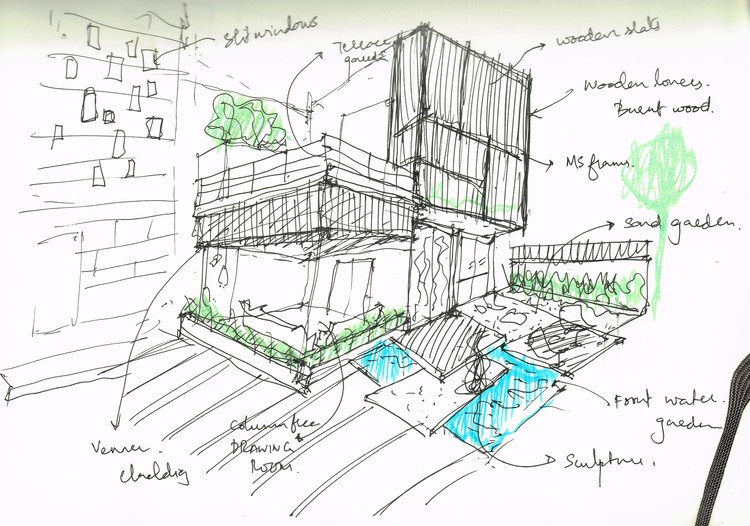 Slit windows
Terrace
garden
wooden slats
Wooden louvers.
Burnt wood.
MS frams.
Sand garden.
Front water.
garden
Sculpture.
Column free
DRAWING
ROOM.
Venner.
Claddig